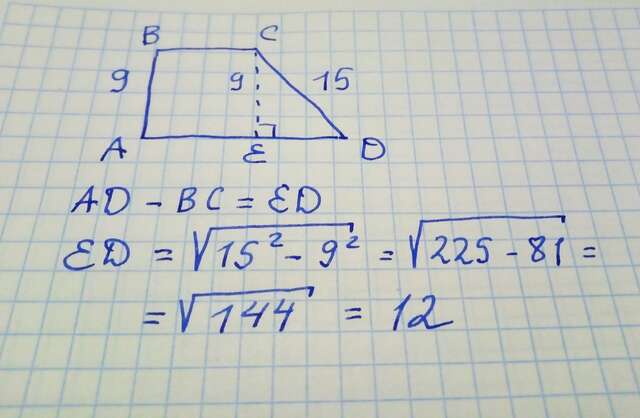 B C
9 9 15
A E D
AD - BC = ED
ED = √15² - 9² = √225 - 81 =
= √144 = 12